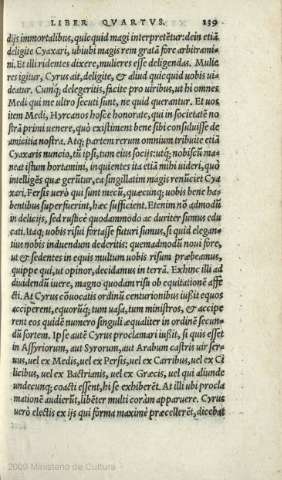 LIBER QVARTVS. 239
dijs immortalibus, quicquid magi interpretẽtur: dein etiã
deligite Cyaxari, ubiubi magis rem gratã fore arbitrami-
ni. Et illi ridentes dixere, mulieres esse deligendas. Mulie
res igitur, Cyrus ait, deligite, & aliud quicquid uobis ui-
deatur. Cumq; delegeritis, facite pro uiribus, ut hi omnes
Medi qui me ultro secuti sunt, ne quid querantur. Et uos
item Medi, Hyrcanos hosce honorate, qui in societatẽ no
strã primi uenere, quò existiment bene sibi consiluisse de
amicitia nostra. Atq; partem rerum omnium tribuite etiã
Cyaxaris nuncio, tũ ipsi, tum eius socijs: utq; nobiscũ ma-
neat istum hortamini, inquientes ita etiã mihi uideri, quò
intelligẽs quæ gerũtur, ea singillatim magis renũciet Cya
xari. Persis uerò qui sunt mecũ, quæcunq; uobis bene ha-
bentibus superfuerint, hæc sufficient. Etenim nõ admodũ
in delicijs, sed rusticè quodammodo ac duriter sumus edu
cati. Itaq; uobis risui fortasse futuri sumus, si quid elegan-
tius nobis induendum dederitis: quemadmodũ noui fore,
ut & sedentes in equis multum uobis risum præbeamus,
quippe qui, ut opinor, decidamus in terrã. Exhinc illi ad
diuidendũ iuere, magno quodam risu ob equitationẽ affe
cti. At Cyrus cõuocatis ordinũ centurionibus iußit equos
acciperent, equorũq; tum uasa, tum ministros, & accipe
rent eos quidẽ numero singuli æqualiter in ordinẽ secun-
dũ sortem. Ipse autẽ Cyrus proclamari iußit, si quis esset
in Assyriorum, aut Syrorum, aut Arabum castris uir ser-
uus, uel ex Medis, uel ex Persis, uel ex Carribus, uel ex Ci
licibus, uel ex Bactrianis, uel ex Græcis, uel qui aliunde
undecunq; coacti essent, hi se exhiberẽt. At illi ubi procla
mationẽ audierũt, libẽter multi coràm apparuere. Cyrus
uerò electis ex ijs qui forma maximè præcellerẽt, dicebat
2009 Ministerio de Cultura